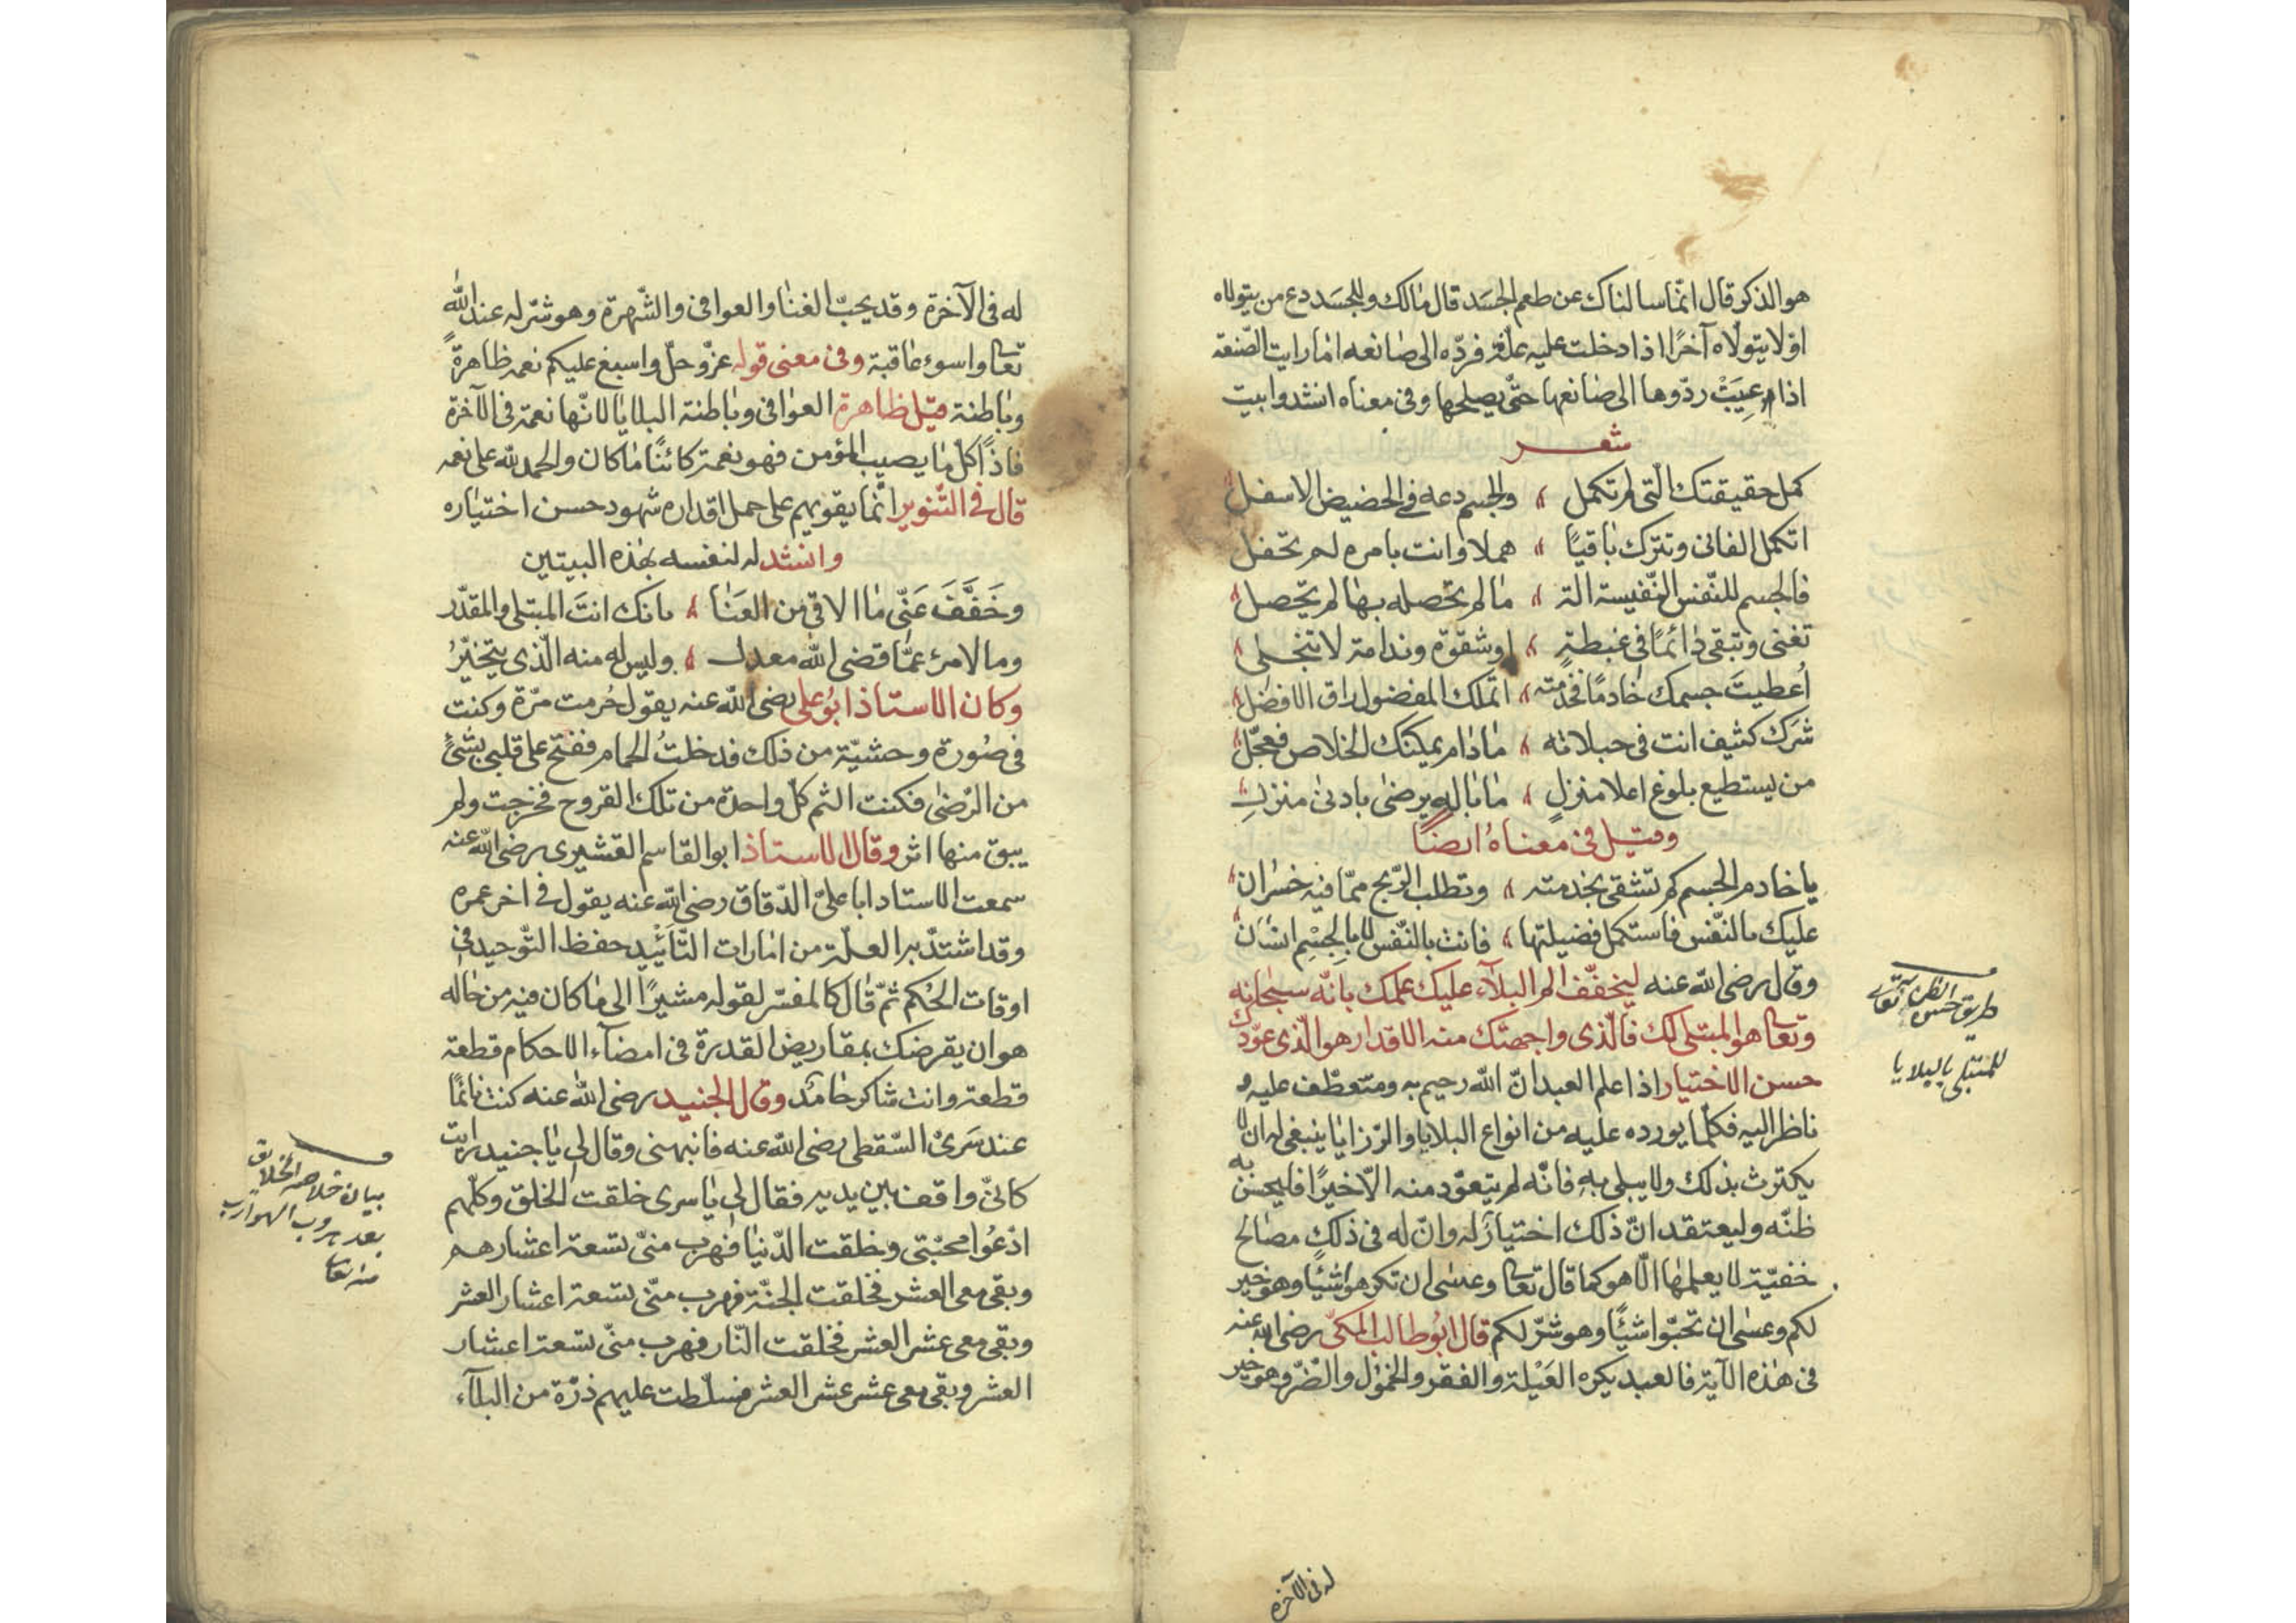 هو الذكر قال انّما سالناك عن طعم الجسد قال مالك وللجسد دع من يتولاه
اوّلا يتولاه آخرًا اذا دخلت عليه علّة فردّه الى صانعه اما رايت الصّنعة
اذا عيبت ردّوها الى صانعها حتّى يصلحها وفى معناه انشدوا بيت
شعر
كمل حقيقتك الّتى لم تكمل والجسم دعه فى الحضيض الاسفل
اتكمل الفانى وتترك باقيًا هملا وانت بامره لم تحفل
فالجسم للنّفس النّفيسة الة ما لم تحصله بها لم يحصل
تفنى وتبقى دائمًا فى غبطة او شقوة وندامة لا تنجلى
اُعطيتَ جسمك خادمًا فخدمته اتملك المفضول راق الافضل
شرك كثيف انت فى حبلاته مادام يمكنك الخلاص فعجّل
من يستطيع بلوغ اعلا منزل ما باله يرضى بادنى منزل
وقيل فى معناه ايضًا
يا خادم الجسم كم تشقى بخدمته وتطلب الرّبح ممّا فيه خسران
عليك بالنّفس فاستكمل فضيلتها فانت بالنّفس لا بالجسم انسان
وقال رضى اللّه عنه ليخفّف الم البلآء عليك علمك بانّه سبحانه
وتعا هو المبتلى لك فالّذى واجهتك منه الاقدار هو الّذى عوّدك
حسن الاختيار اذا علم العبد انّ اللّه رحيم به ومتعطّف عليه و
ناظر اليه فكلّما يورده عليه من انواع البلايا والرّزايا ينبغى له ان لا
يكترث بذلك ولا يبلى به فانّه لم يتعوّد منه الّا خيرًا فليحسن به
ظنّه وليعتقد انّ ذلك اختيار له وانّ له فى ذلك مصالح
خفيّة لا يعلمها الّا هو كما قال تعا وعسى ان تكرهوا شيئًا وهو خير
لكم وعسى ان تحبّوا شيئًا وهو شرّ لكم قال ابو طالب المكّى رضى اللّه عنه
فى هذه الآية فالعبد يكره العَيْلة والفقر والخمول والضّرّ وهو خير
طريق حسن الظن به تعا
للمبتلى بالبلايا
له فى الآخرة
له فى الآخرة وقد يحبّ الغنا والعوافى والشّهرة وهو شرّ له عند اللّه
تعا واسوء عاقبة وفى معنى قوله عزّ وجلّ واسبغ عليكم نعمه ظاهرةً
وباطنة قيل ظاهرة العوافى وباطنة البلايا لانّها نعمة فى الآخرة
فاذًا كلّ ما يصيب المؤمن فهو نعمة كائنًا ما كان والحمد للّه على نعمه
قال فى التّنوير انّما يقويهم على حمل اقداره شهود حسن اختياره
وانشد له لنفسه بهذه البيتين
وخَفَّفَ عَنّى ما الاقى من العَنا بانك انتَ المبتلى والمقدّر
وما لامرئ عمّا قضى اللّه معدل وليس له منه الّذى يتخيّرُ
وكان الاستاذ ابُو على رضى اللّه عنه يقول حُرمت مرّة وكنت
فى صورة وحشيّة من ذلك فدخلتُ الحمام ففتح على قلبى بشئٍ
من الرّضى فكنت الثم كلّ واحدة من تلك القروح فخرجت ولم
يبق منها اثر وقال الاستاذ ابو القاسم القشيرى رضى اللّه عنه
سمعت الاستاد ابا علىّ الدّقاق رضى اللّه عنه يقول فى اخر عمره
وقد اشتدّ به العلّة من امارات التّأييد حفظ التّوحيد فى
اوقات الحُكم ثمّ قال كالمفسّر لقوله مشيرًا الى ما كان فيه من حاله
هو ان يقرضك بمقاريض القدرة فى امضآء الاحكام قطعة
قطعة وانت شاكر حامد وقال الجنيد رضى اللّه عنه كنت نائمًا
عند سَرىّ السّقطى رضى اللّه عنه فانبهنى وقال لى يا جنيد رايت
كانىّ واقف بين يديه فقال لى يا سرى خلقت الخلق وكلّهم
ادّعُوا محبّتى وخلقت الدّنيا فهرب منّى تسعة اعشارهم
وبقى معى العشر فخلقت الجنّة فهرب منّى تسعة اعشار العشر
وبقى معى عشر العشر فخلقت النّار فهرب منّى تسعة اعشار
العشر وبقى معى عشر عشر العشر فسلّطت عليهم ذرّة من البلآء
بيان خلاصة الخلايق
بعد هروب الهوارب
منه تعا